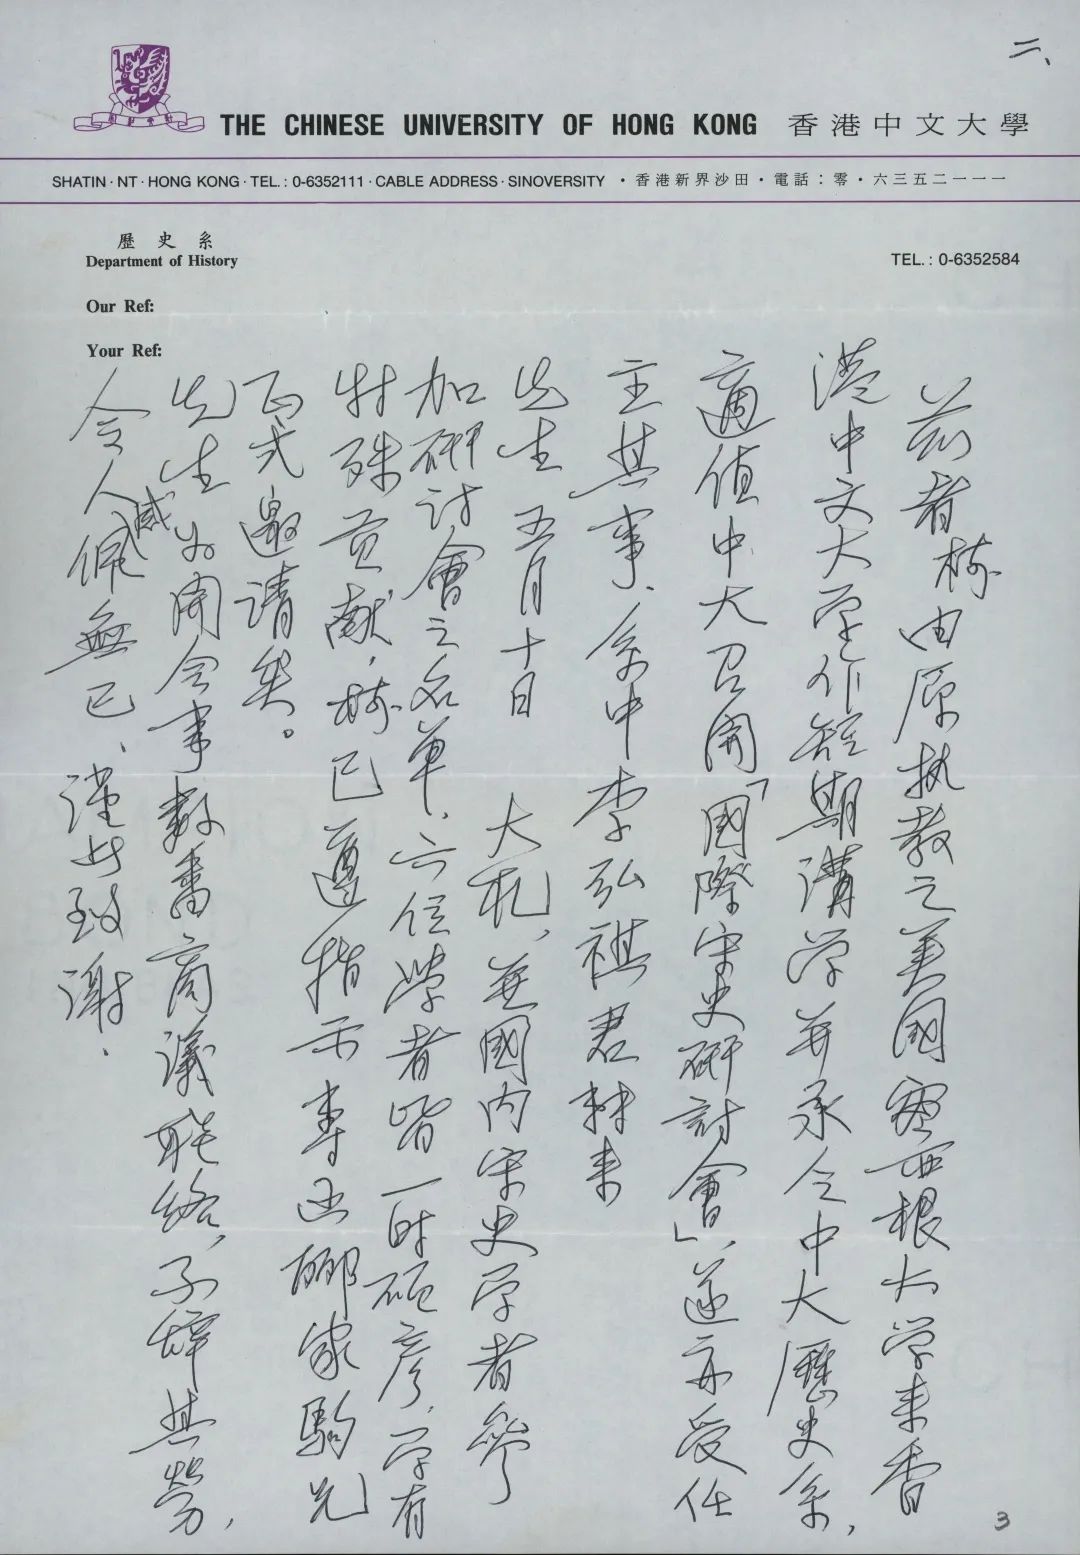 二、
THE CHINESE UNIVERSITY OF HONG KONG 香港中文大學
SHATIN·NT·HONG KONG·TEL.: 0-6352111·CABLE ADDRESS·SINOVERSITY ·香港新界沙田·電話：零·六三五二一一一
歷史系
Department of History
TEL.: 0-6352584
Our Ref:
Your Ref:
茲者棫由原执教之美國密西根大学来香
港中文大学作短期講学，并承令中大歷史系，
適值中大召開「國際宋史研討會」，遂亦受任
主其事、系中李弘祺君转来
先生五月十日大札，並國内宋史学者參
加研讨會之名單，六位學者皆一时硕彦，学有
特殊贡献，已遵指示專函酈家駒兄
正式邀请矣。
先生为開会事数番商議联络，不辞其勞，
令人感佩無已、谨此致谢．
3